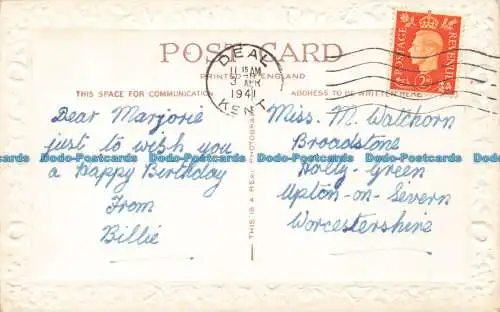 POST CARD
PRINTED IN ENGLAND
THIS SPACE FOR COMMUNICATION
ADDRESS TO BE WRITTEN HERE
DEAL
11 15 AM
APR
1941
KENT
POSTAGE
REVENUE
Dear Marjorie
just to wish you
a happy Birthday
From
Billie
THIS IS A REAL PHOTOGRAPH
Miss. M. Watthorn
Broadstone
Holly-Green
Upton-on-Severn
Worcestershire
Dodo-Postcards Dodo-Postcards Dodo-Postcards Dodo-Postcards Dodo-Postcards Dodo-Postcards